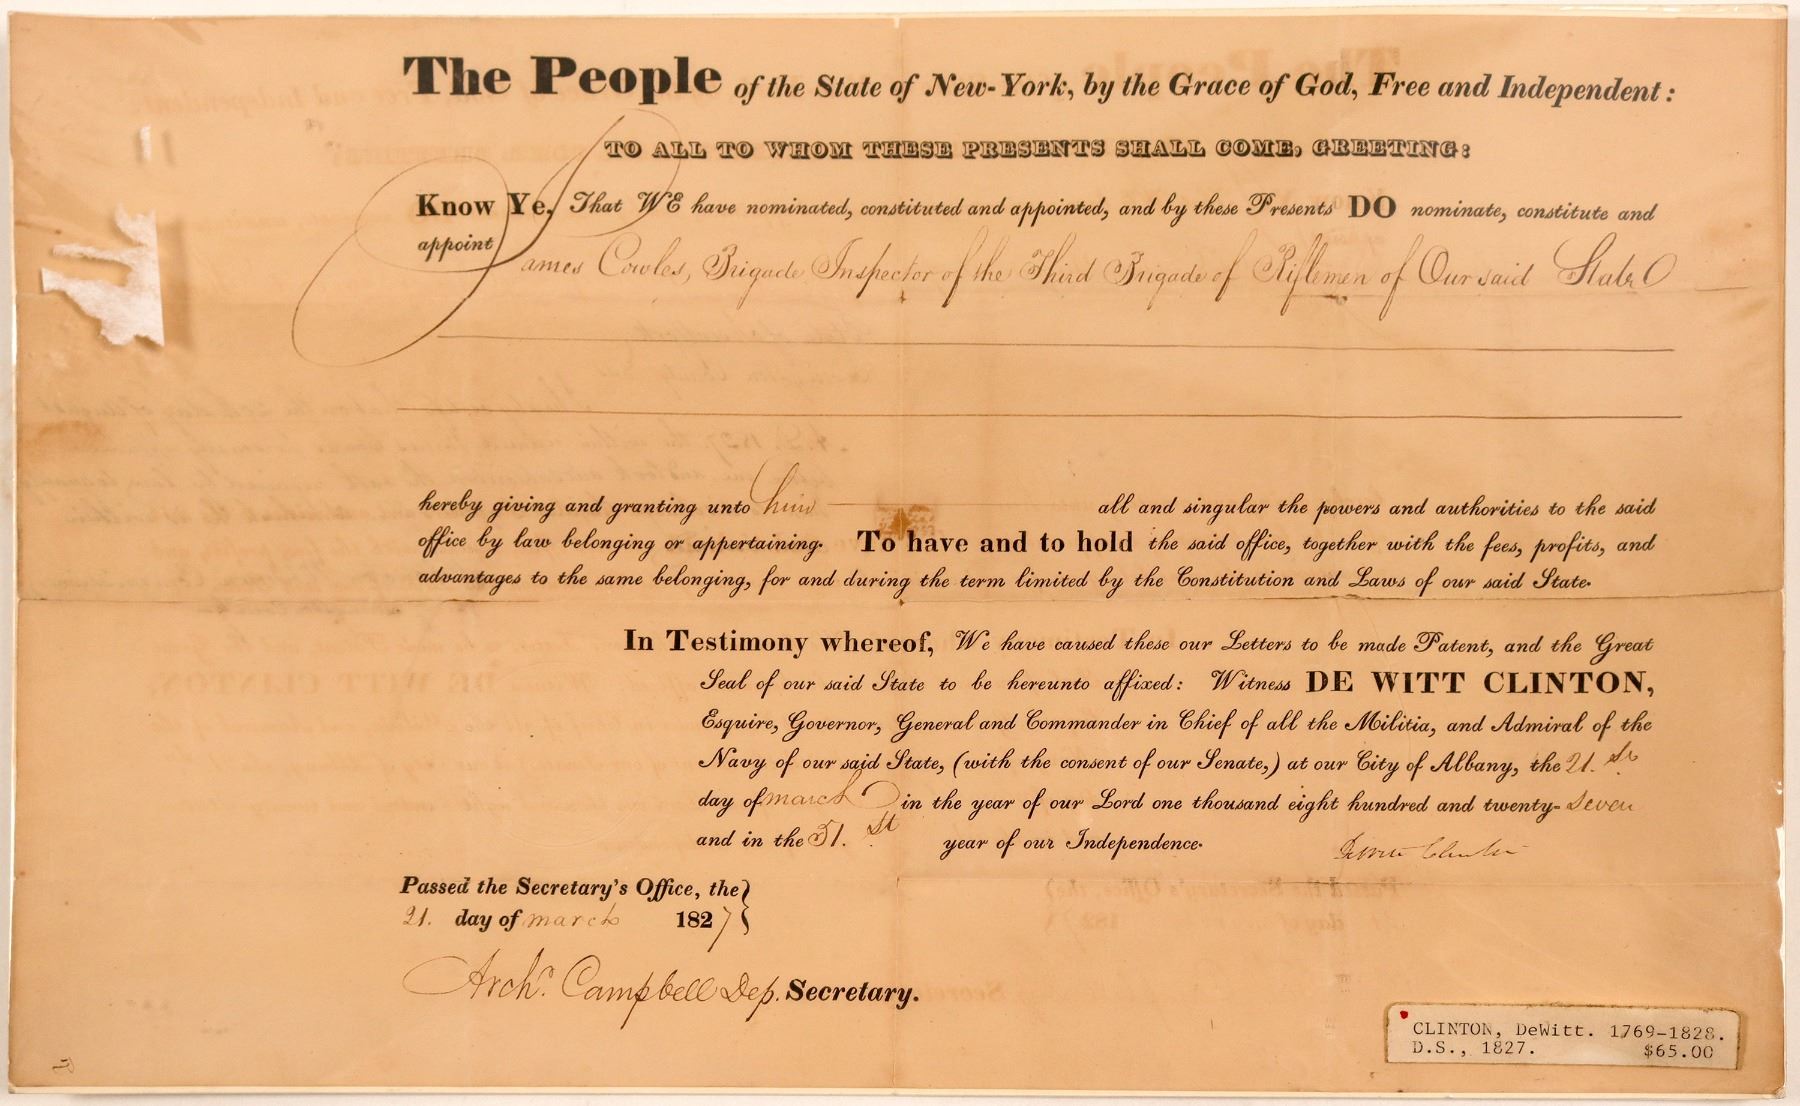 The People of the State of New-York, by the Grace of God, Free and Independent:
TO ALL TO WHOM THESE PRESENTS SHALL COME, GREETING:
Know Ye, That WE have nominated, constituted and appointed, and by these Presents DO nominate, constitute and
appoint James Cowles, Brigade Inspector of the Third Brigade of Riflemen of Our said State
hereby giving and granting unto him all and singular the powers and authorities to the said
office by law belonging or appertaining. To have and to hold the said office, together with the fees, profits, and
advantages to the same belonging, for and during the term limited by the Constitution and Laws of our said State.
In Testimony whereof, We have caused these our Letters to be made Patent, and the Great
Seal of our said State to be hereunto affixed: Witness DE WITT CLINTON,
Esquire, Governor, General and Commander in Chief of all the Militia, and Admiral of the
Navy of our said State, (with the consent of our Senate,) at our City of Albany, the 21. st
day of march in the year of our Lord one thousand eight hundred and twenty-seven
and in the 51. st year of our Independence.
DeWitt Clinton
Passed the Secretary's Office, the
21. day of march 1827
Archd. Campbell Dep. Secretary.
CLINTON, DeWitt. 1769-1828.
D.S., 1827. $65.00